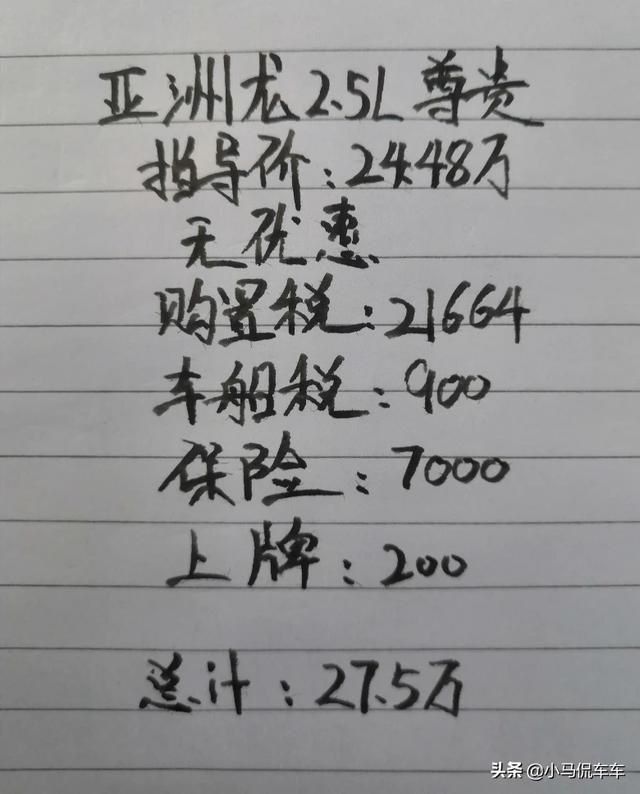 亚洲龙2.5L尊贵
指导价:24.48万
无优惠
购置税:21664
车船税:900
保险:7000
上牌:200
总计:27.5万
头条 @小马侃车车